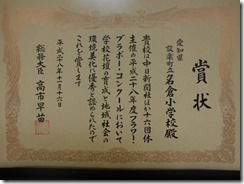 賞状
愛知県
設楽町立名倉小学校殿
貴校は中日新聞社ほか十六団体
主催の平成二十八年度フラワー・
ブラボー・コンクールにおいて
学校花壇の育成と地域社会の
環境美化に優秀と認められたので
これを賞します
平成二十八年十一月十六日
総務大臣 高市早苗